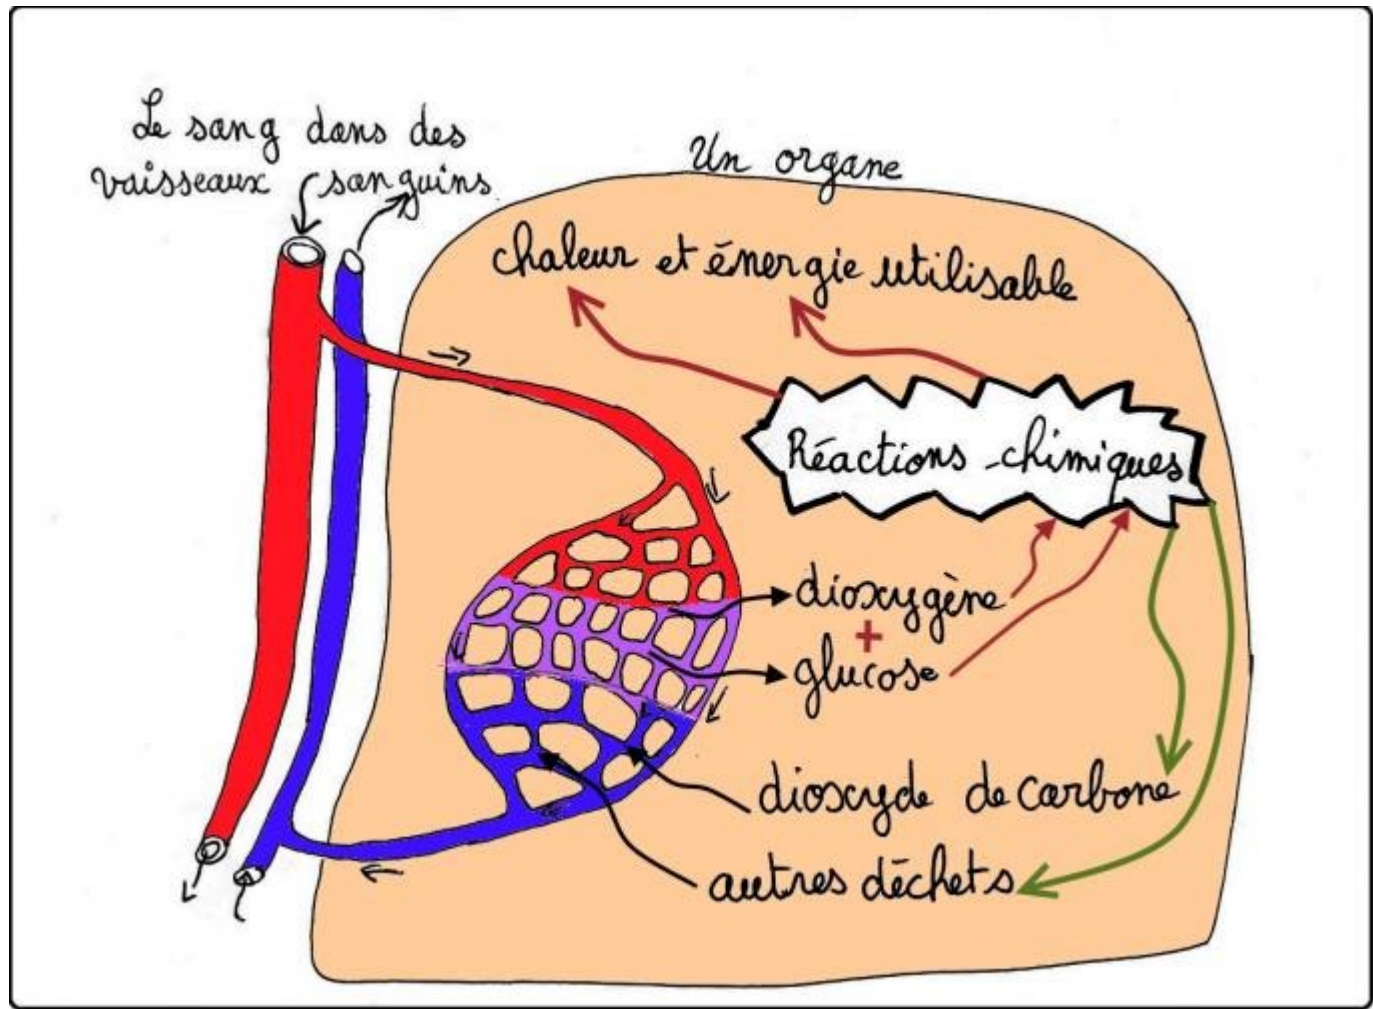 Le sang dans des
vaisseaux sanguins
Un organe
chaleur et énergie utilisable
Réactions chimiques
dioxygène
+
glucose
dioxyde de carbone
autres déchets